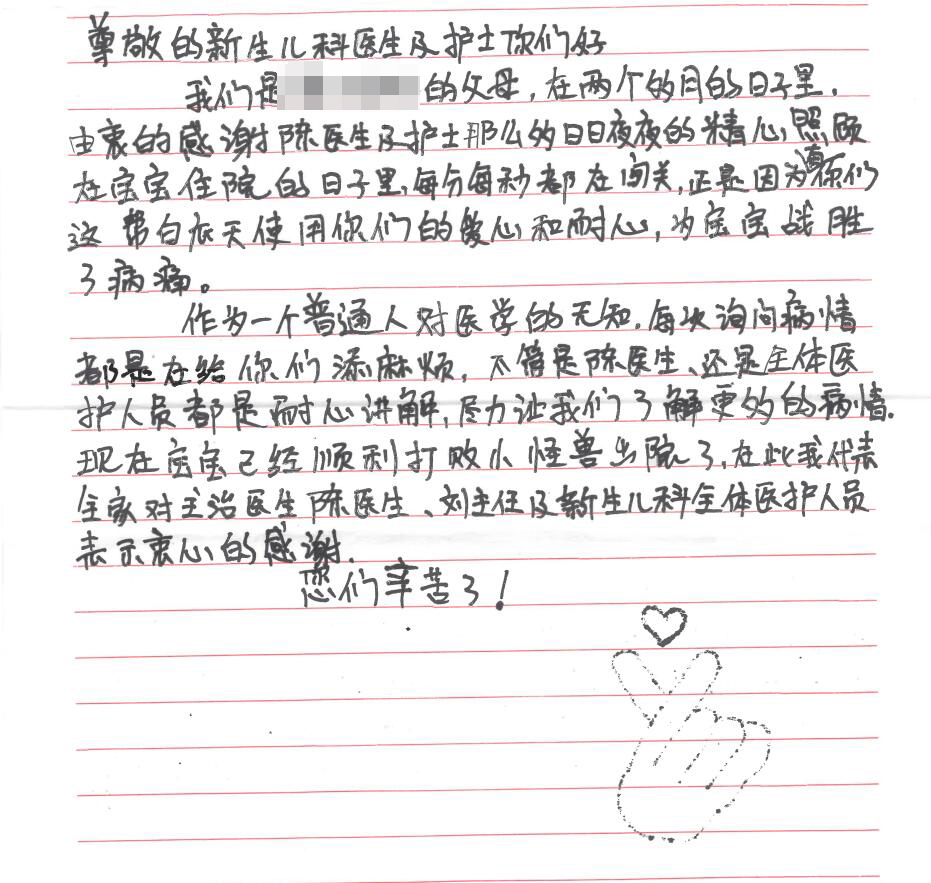 尊敬的新生儿科医生及护士你们好
我们是的父母，在两个多月的日子里，
由衷的感谢陈医生及护士那么多日日夜夜的精心照顾
在宝宝住院的日子里，每分每秒都在闯关，正是因为有你们
这帮白衣天使用你们的爱心和耐心，为宝宝战胜
了病痛。
作为一个普通人对医学的无知，每次询问病情
都是在给你们添麻烦，不管是陈医生、还是全体医
护人员都是耐心讲解，尽力让我们了解更多的病情.
现在宝宝已经顺利打败小怪兽出院了，在此我代表
全家对主治医生陈医生、刘主任及新生儿科全体医护人员
表示衷心的感谢.
您们辛苦了！